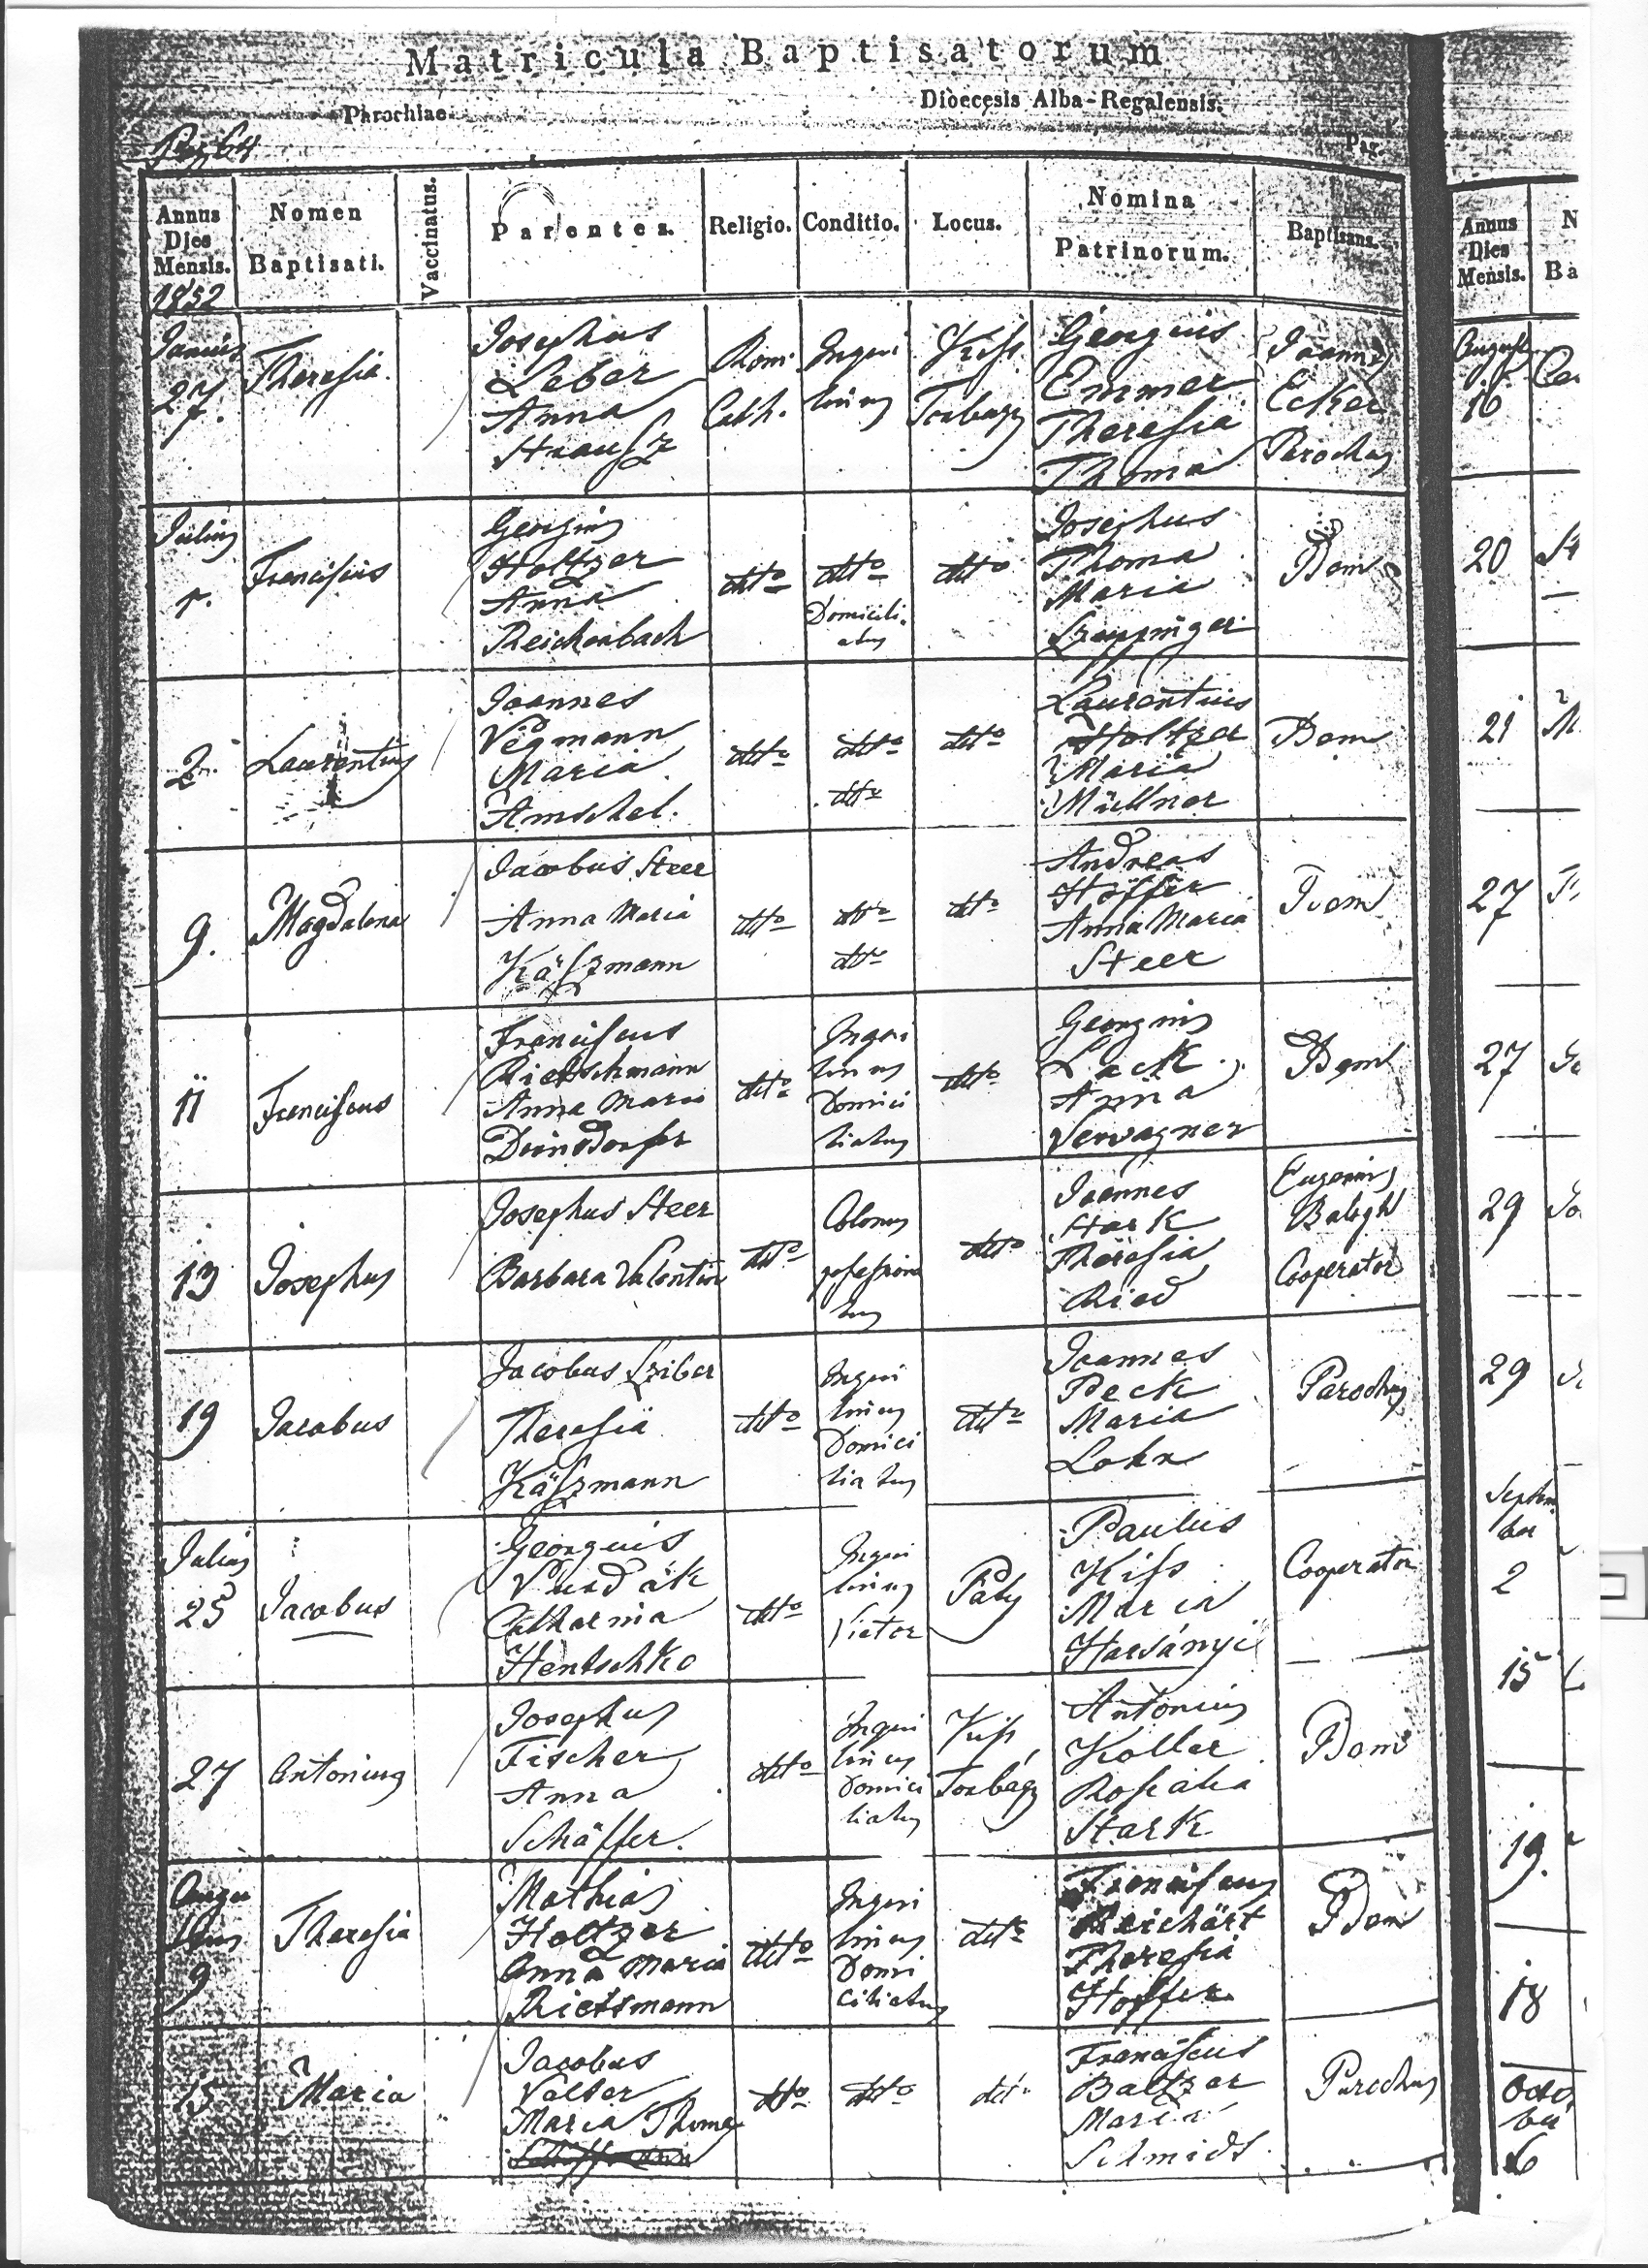 Matricula Baptisatorum
Parochiae
Dioecesis Alba-Regalensis.
Pag. 64
Pag.
Annus Dies Mensis.
Nomen Baptisati.
Vaccinatus.
Parentes.
Religio.
Conditio.
Locus.
Nomina Patrinorum.
Baptisans.
1852
Junius
27.
Theresia
Josephus
Leber
Anna
Strausz
Rom.
Cath.
Inqui
linus
Kiss
Torbágy
Georgius
Emmer
Theresia
Thoma
Joannes
Ecker
Parochus
Julius
1.
Franciscus
Georgius
Holtzer
Anna
Reichenbach
detto
detto
Domicili
atus
detto
Josephus
Thoma
Maria
Idem
2
Laurentius
Joannes
Vegmann
Maria
Amschel.
detto
detto
detto
detto
Laurentius
Holtzer
Maria
Müllner
Idem
9.
Magdalena
Jacobus Steer
Anna Maria
Käszmann
detto
detto
detto
detto
Andreas
Höffer
Anna Maria
Steer
Idem
11
Franciscus
Franciscus
Rietschmann
Anna Maria
Deinsdorfer
detto
Inqui
linus
Domici
liatus
detto
Georgius
Lack
Anna
Verwagner
Idem
13
Josephus
Josephus Steer
Barbara Valentin
detto
Colonus
possessiona
tus
detto
Joannes
Stark
Theresia
Ried
Eugenius
Balogh
Cooperator
19
Jacobus
Jacobus Sziber
Theresia
Käszmann
detto
Inqui
linus
Domici
liatus
detto
Joannes
Peck
Maria
Lohr
Parochus
Julius
25
Jacobus
Georgius
Vundák
Catharina
Hentschko
detto
Inqui
linus
Vietor
Páty
Paulus
Kiss
Maria
Harsányi
Cooperator
27
Antonius
Josephus
Fischer
Anna
Schäffer.
detto
Inqui
linus
Domici
liatus
Kiss
Torbágy
Antonius
Koller
Rosalia
Stark
Idem
Augu
stus
9
Theresia
Mathias
Holtzer
Anna Maria
Rietsmann
detto
Inqui
linus
Domi
ciliatus
detto
Franciscus
Reichärt
Theresia
Hoffer
Idem
15
Maria
Jacobus
Valter
Maria Thoma
detto
detto
detto
Franciscus
Baltzer
Maria
Schmidt
Parochus
Annus
Dies
Mensis.
N
Ba
August
16
20
21
27
27
29
29
Septem
ber
2
15
19.
18
Octo
ber
6